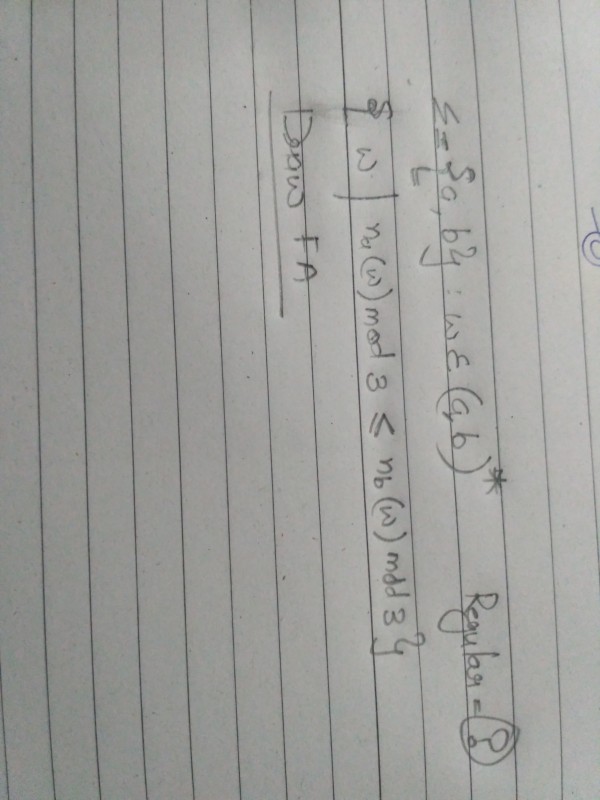 Σ = {a, b} : w ε (a, b)*
Regular = ?
{ w | na(w) mod 3 ≤ nb(w) mod 3 }
Draw FA